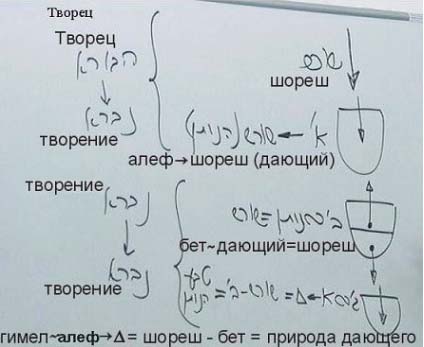 Творец
Творец
הבורא
שורש
шореш
נברא
творение
א' ← שורש (הנותן)
алеф→шореш (дающий)
творение
נברא
ב'~הנותן=שורש
бет~дающий=шореш
נברא
творение
טבע
Δ = שורש-ב' = הנותן
гимел~алеф→Δ = шореш - бет = природа дающего